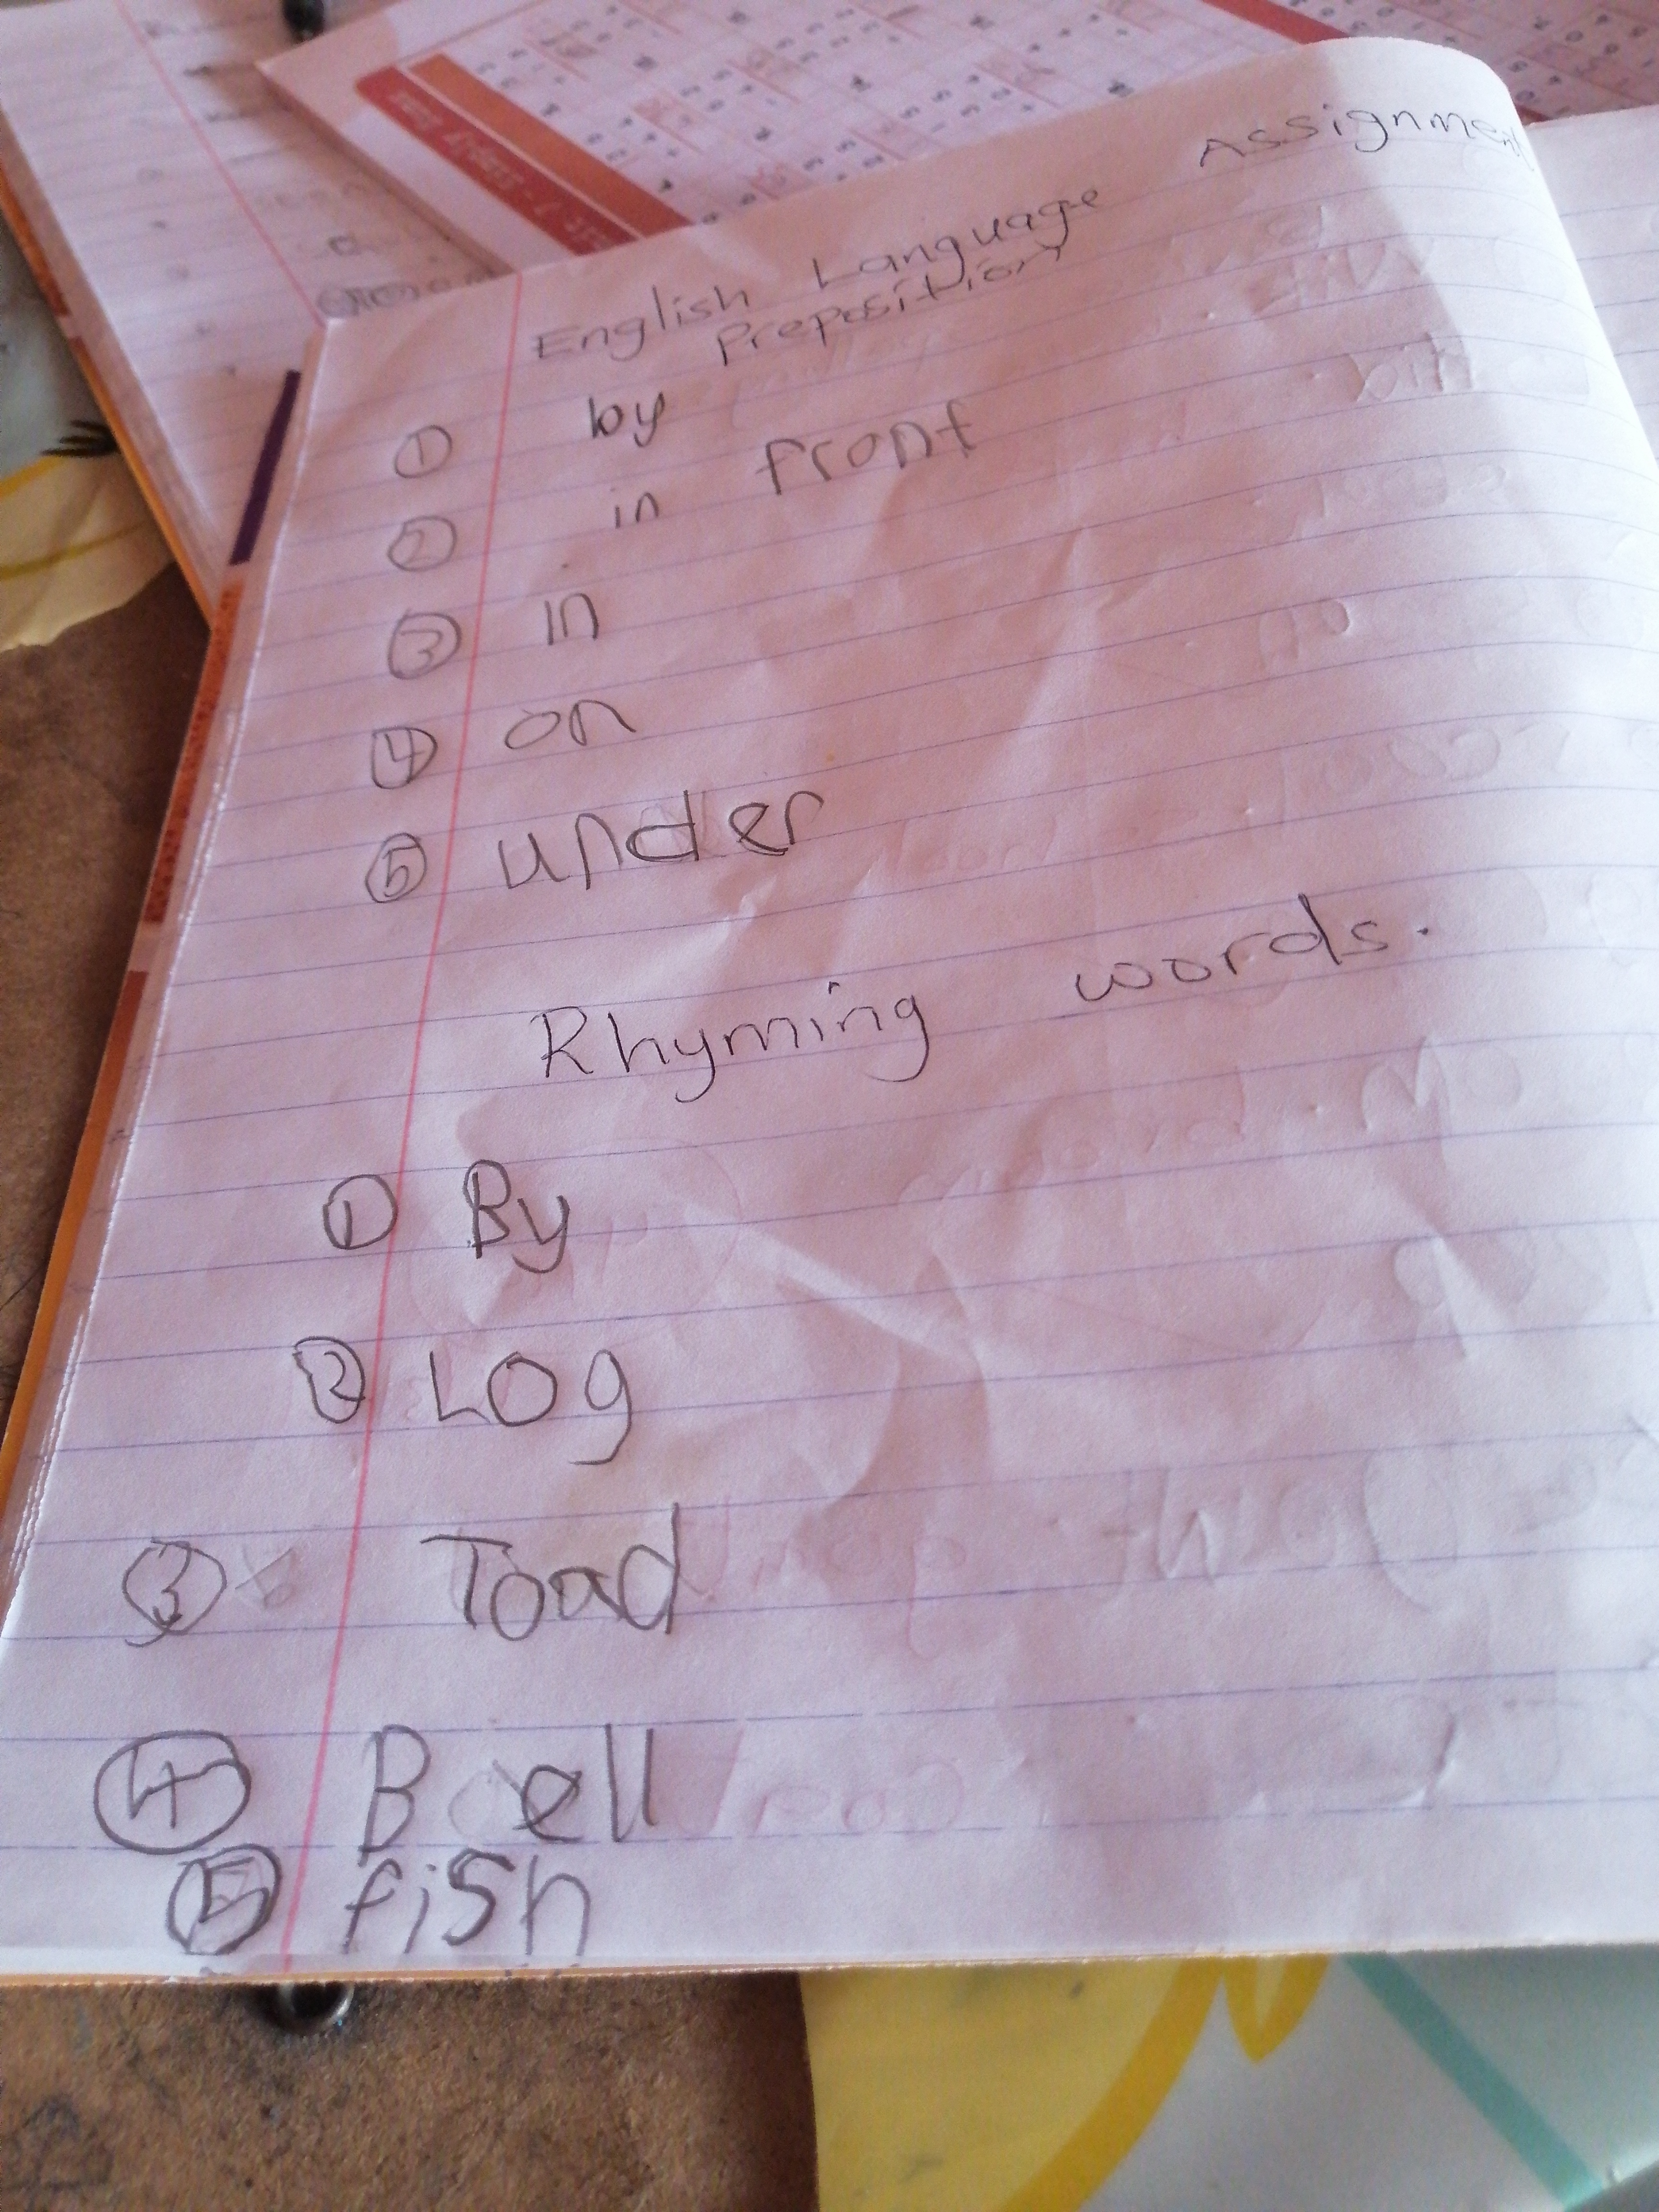 English Language Assignment
Preposition
1 by
2 in front
3 in
4 on
5 under
Rhyming words.
1 By
2 Log
3 Toad
4 Bell
5 fish